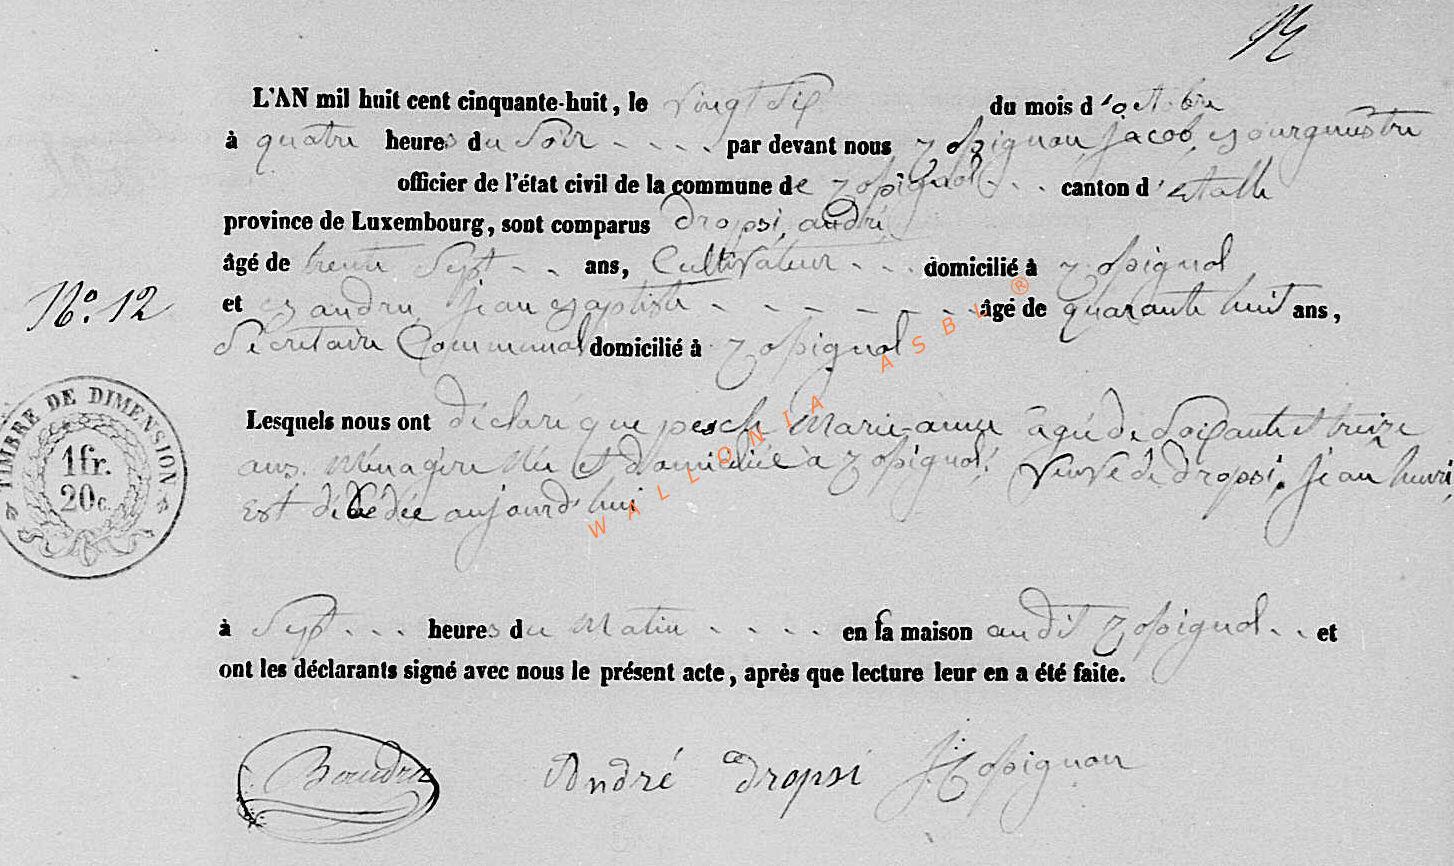 L'AN mil huit cent cinquante-huit, le vingt six du mois d'octobre
à quatre heures du soir par devant nous Zopignon, Jacob, Bourgmestre
officier de l'état civil de la commune de canton d'etalle
province de Luxembourg, sont comparus dropsi, andré
âgé de trente Sept ans, Cultivateur domicilié à
et Baudru, jean Baptiste âgé de quarante huit ans,
N° 12
Secretaire Communal domicilié à
Lesquels nous ont déclaré que pesch, Marie-anne âgée de Soixante et treize
ans. Ménagère Née et domiciliée à Veuve de dropsi, jean henri,
est décédée aujourd'hui
TIMBRE DE DIMENSION
1fr.
20c.
à Sept heures du Matin en sa maison audit et
ont les déclarants signé avec nous le présent acte, après que lecture leur en a été faite.
André dropsi
WALLONIA ASBL ®